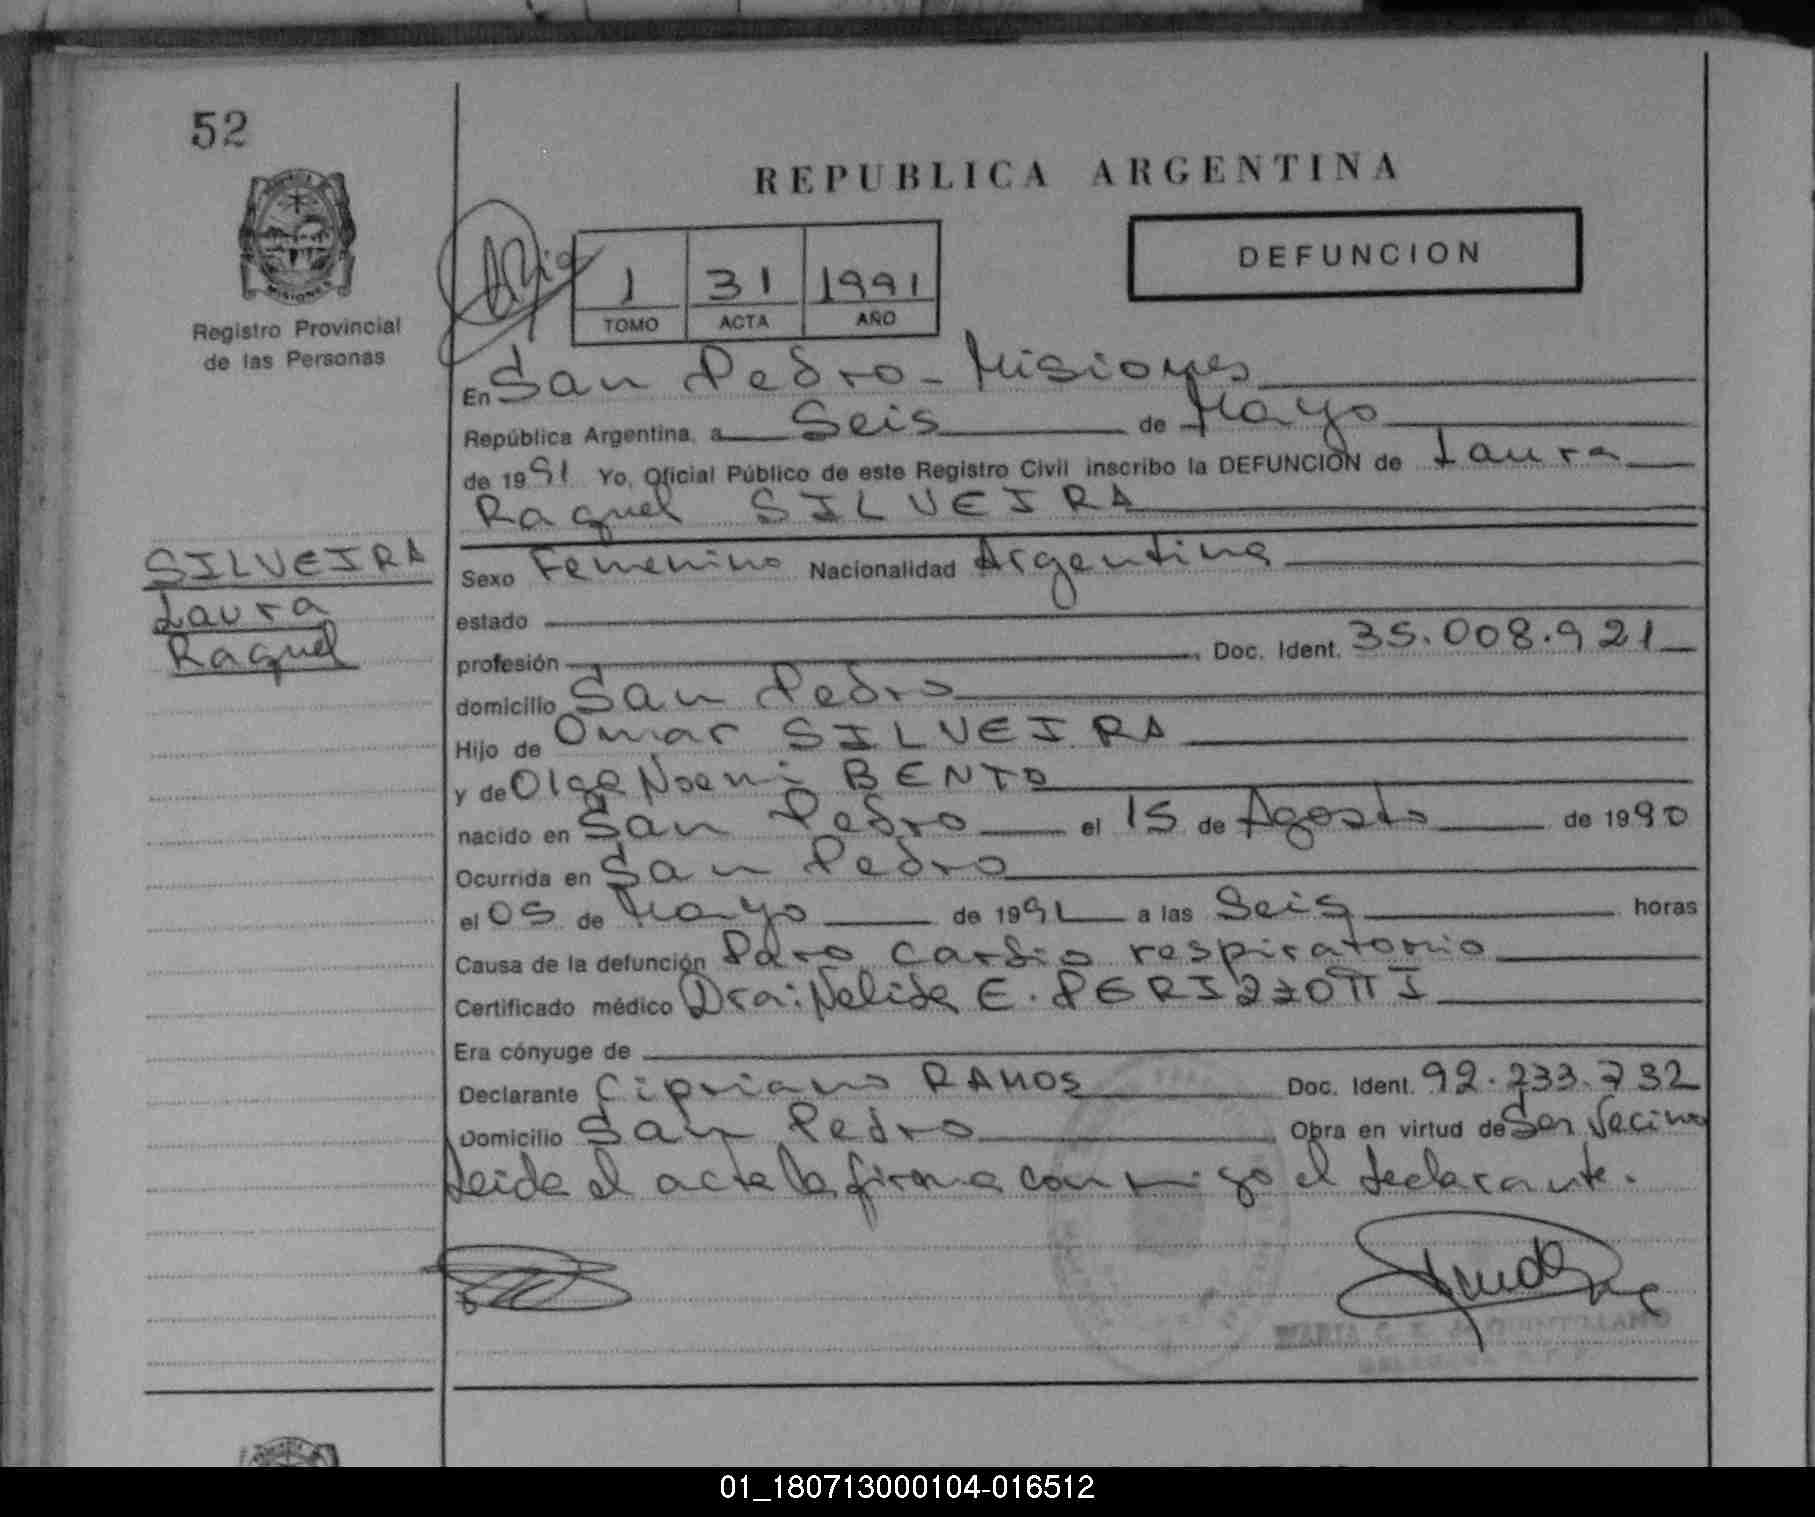 52
REPUBLICA ARGENTINA
MISIONES
Registro Provincial
de las Personas
1 31 1991
TOMO ACTA AÑO
DEFUNCION
En San Pedro - Misiones
República Argentina, a Seis de Mayo
de 1991 Yo, Oficial Público de este Registro Civil inscribo la DEFUNCION de Laura
Raquel SILVEIRA
SILVEIRA
Laura
Raquel
Sexo Femenino Nacionalidad Argentina
estado
profesión Doc. Ident. 35.008.921
domicilio San Pedro
Hijo de Omar SILVEIRA
y de Olga Noemi BENTO
nacido en San Pedro el 15 de Agosto de 1990
Ocurrida en San Pedro
el 05 de Mayo de 1991 a las Seis horas
Causa de la defunción Paro cardio respiratorio
Certificado médico Dra: Nelida E. PERIZZOTTI
Era cónyuge de
Declarante Cipriano RAMOS Doc. Ident. 92.233.732
Domicilio San Pedro Obra en virtud de Ser Vecino
Leida el acta la firma conmigo el declarante.
01_180713000104-016512